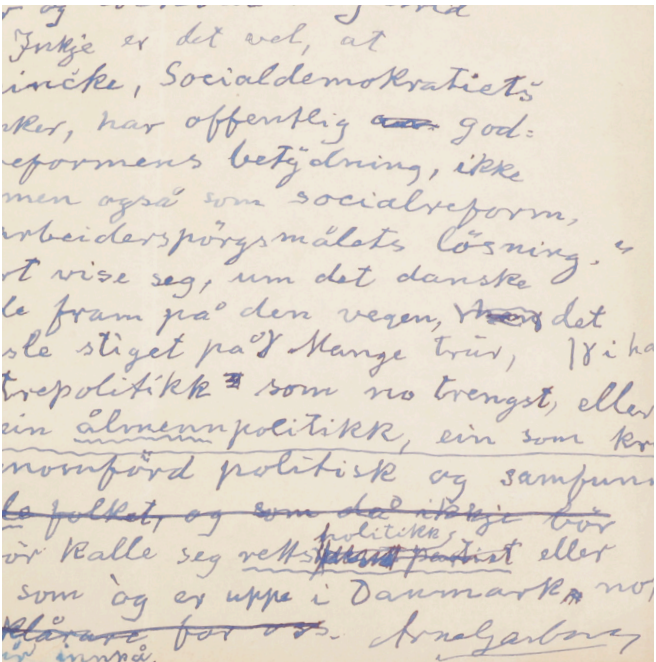 Inkje er det vel, at
incke, Socialdemokratiets
nker, har offentlig god=
eformens betydning, ikke
men også som socialreform,
arbeiderspörgsmålets lösning."
rt vise seg, um det danske
le fram på den vegen, det
sle stiget på Mange trur, i ha
trepolitikk som no trengst, eller
ein ålmennpolitikk, ein som kr
nomförd politisk og samfun
le folket, og som då ikkje bör
politikk,
ör kalle seg retts partiet eller
som òg er uppe i Danmark, no
klårare for oss. Arne Garborg
er innpå.